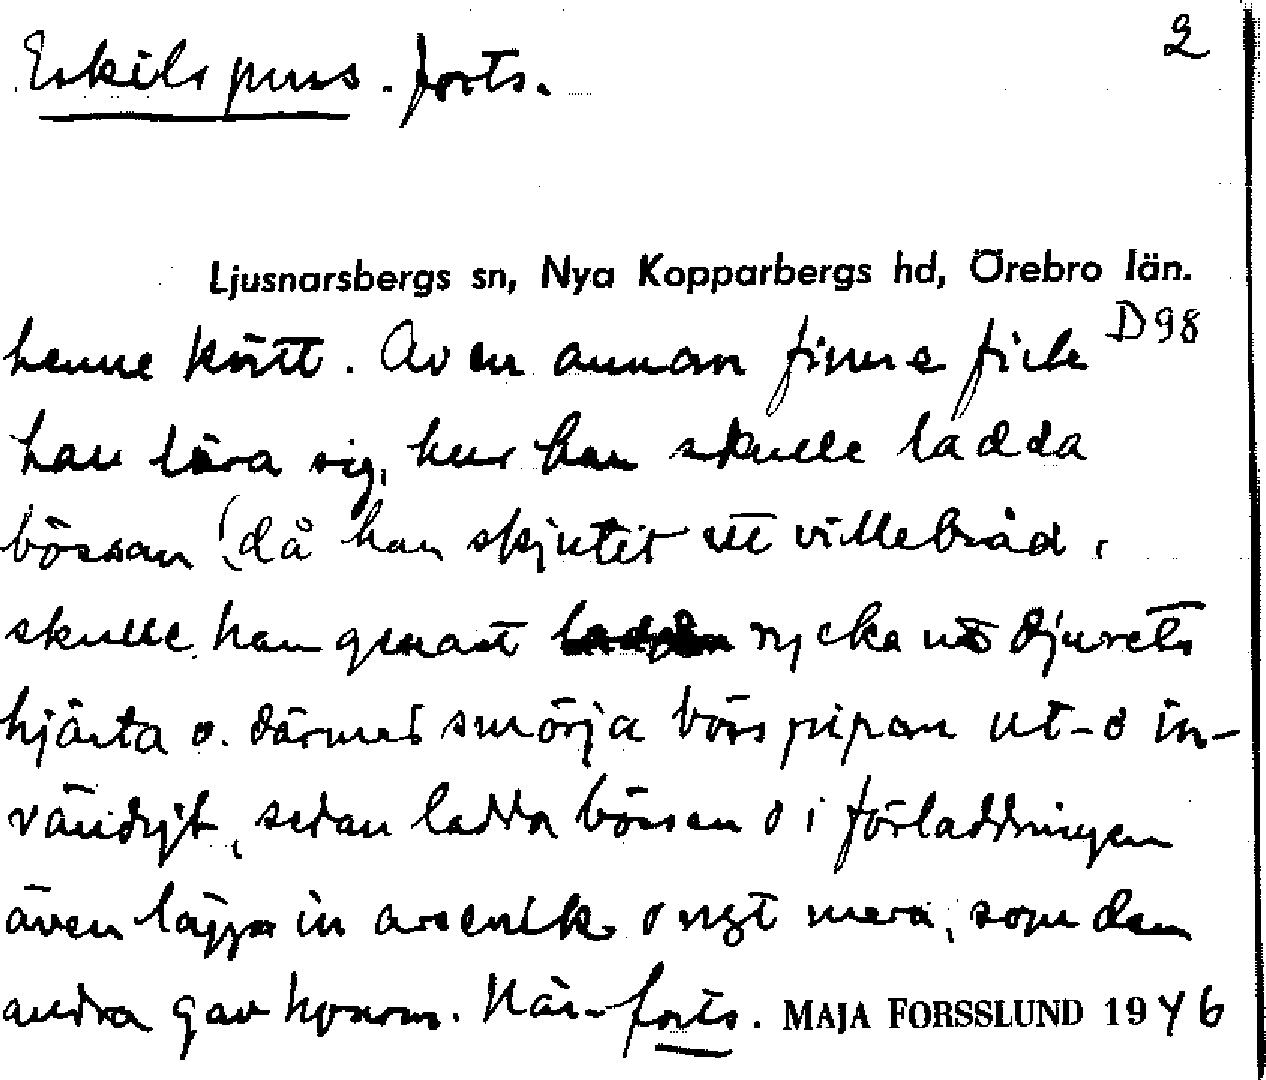 2
Eskils puss. forts.
Ljusnarsbergs sn, Nya Kopparbergs hd, Örebro län.
D 98
henne kött. Av en annan finne fick
han lära sig, hur han skulle ladda
bössan (då han skjutit ett villebråd,
skulle han genast rycka ut djurets
hjärta o. därmed smörja böss pipan ut- o in-
vändigt, sedan ladda bössan o i förladdningen
även lägga in arsenik o ngt mera, som den
andra gav honom. När- forts. MAJA FORSSLUND 1946